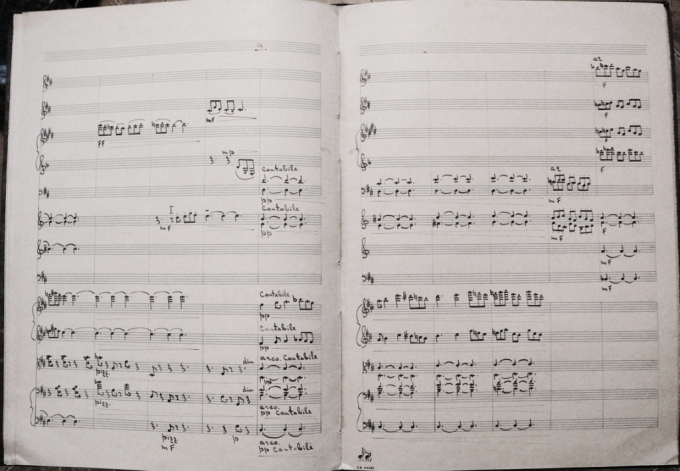 9.
mf
ff
mp
Cantabile
pp
Cantabile
I
mf
pp
Cantabile
pp
Cantabile
pp
div
arco. Cantabile
pizz
div
pizz
arco.
pp Cantabile
pizz
mf
p
arco.
pp Cantabile
a2
f
f
f
a2
f
mf
mf
f
mf
mf